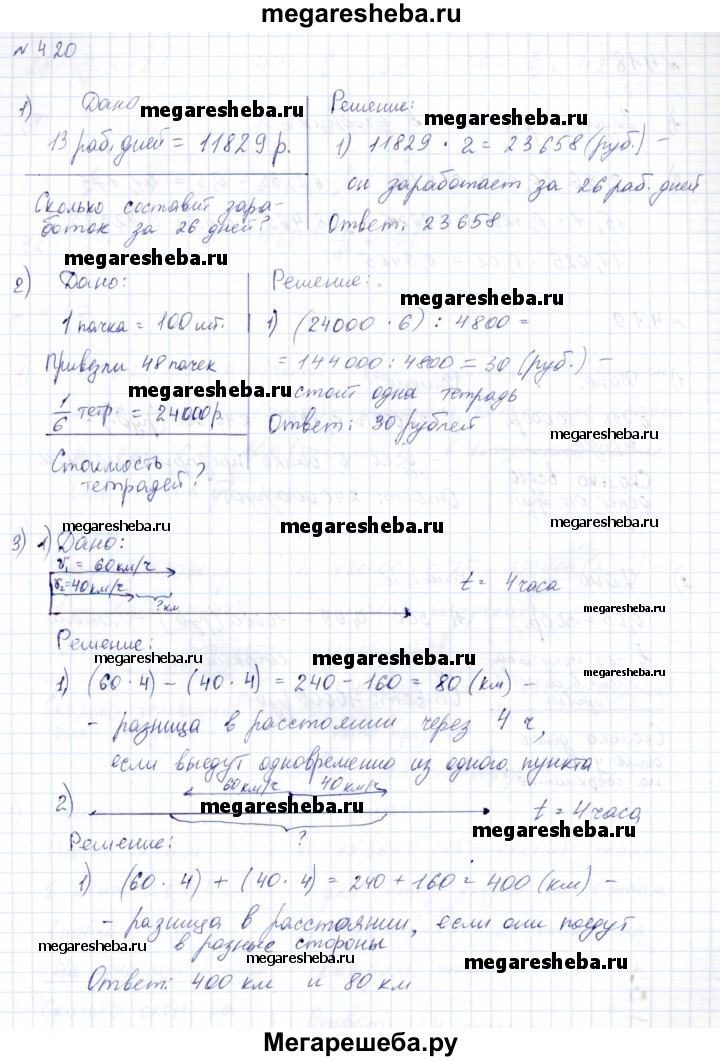 megaresheba.ru
№ 420
1) Дано
13 раб. дней = 11829 р.
Сколько составит зара-
боток за 26 дней?
Решение:
1) 11829 · 2 = 23658 (руб.) –
он заработает за 26 раб. дней
Ответ: 23658.
megaresheba.ru
megaresheba.ru
megaresheba.ru
2) Дано:
1 пачка = 100 шт.
Привезли 48 пачек
1/6 тетр. = 24000 р.
Стоимость
тетрадей?
Решение:
1) (24000 · 6) : 4800 =
= 144000 : 4800 = 30 (руб.) –
стоит одна тетрадь
Ответ: 30 рублей
megaresheba.ru
megaresheba.ru
megaresheba.ru
megaresheba.ru
megaresheba.ru
3) 1) Дано:
v₁ = 60 км/ч
v₂ = 40 км/ч
? км
t = 4 часа
megaresheba.ru
Решение:
megaresheba.ru
megaresheba.ru
megaresheba.ru
1) (60 · 4) – (40 · 4) = 240 – 160 = 80 (км) –
– разница в расстоянии через 4 ч,
если выедут одновременно из одного пункта
2) 60 км/ч 40 км/ч
?
t = 4 часа
megaresheba.ru
megaresheba.ru
Решение:
1) (60 · 4) + (40 · 4) = 240 + 160 = 400 (км) –
– разница в расстоянии, если они поедут
в разные стороны
megaresheba.ru
megaresheba.ru
Ответ: 400 км и 80 км
Мегарешеба.ру